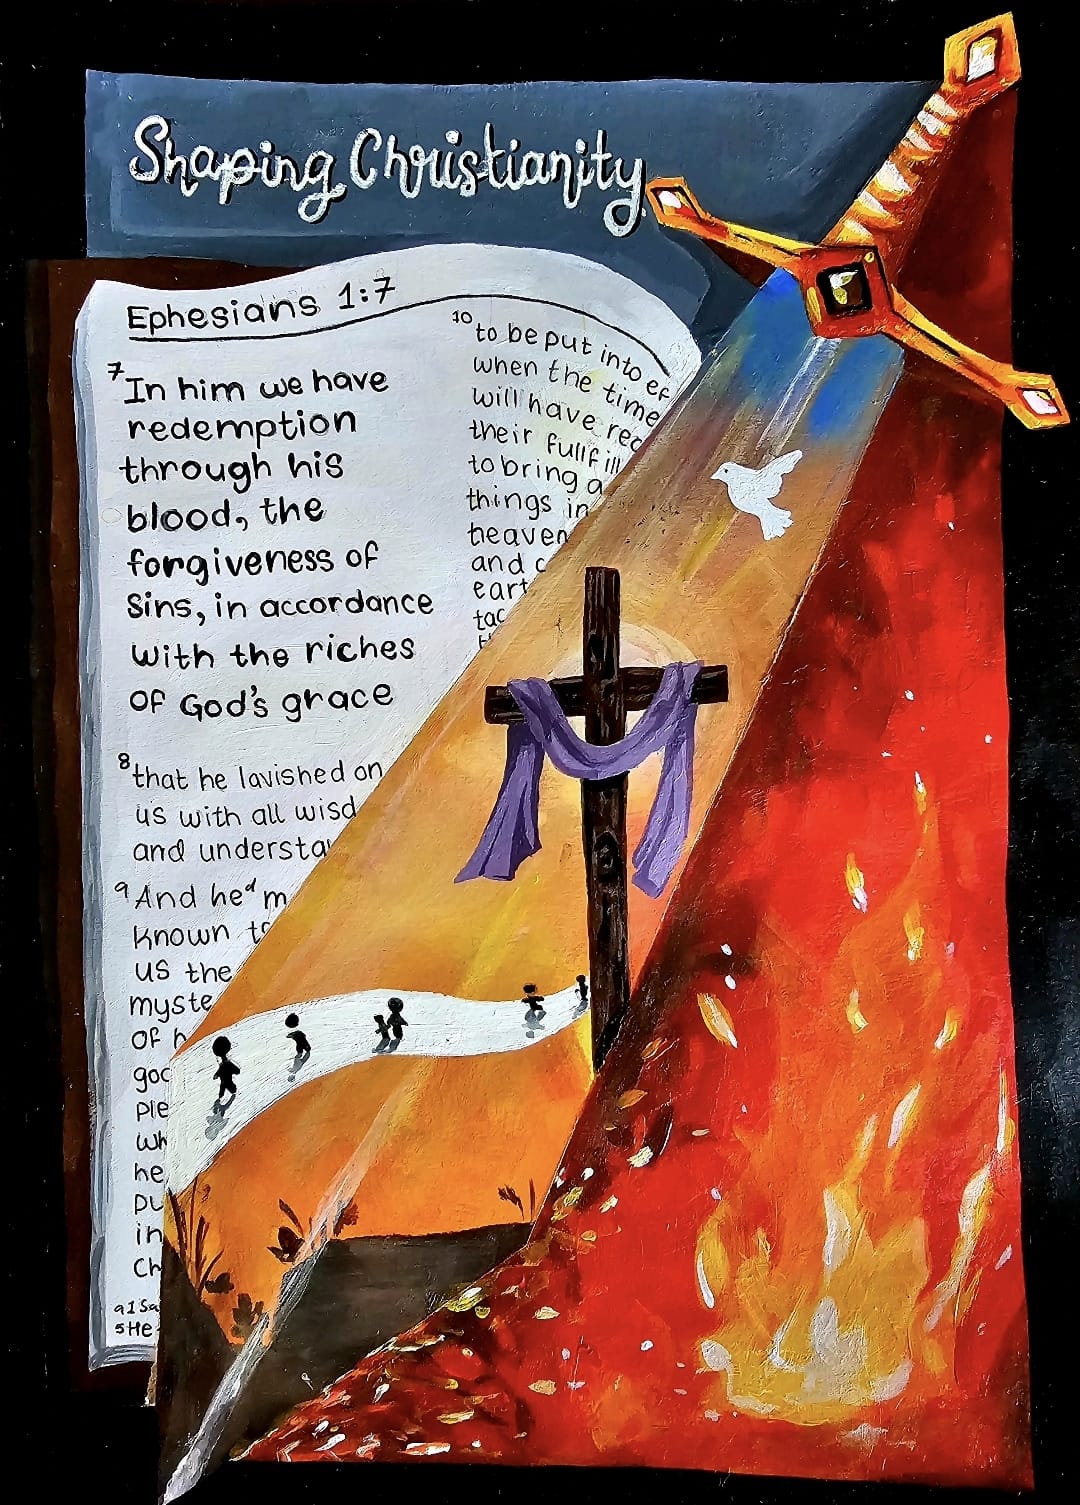 Shaping Christianity
Ephesians 1:7
7 In him we have
redemption
through his
blood, the
forgiveness of
Sins, in accordance
with the riches
of God's grace
8 that he lavished on
us with all wisd
and understa
9 And he d m
known t
us the
myste
of h
goo
ple
wh
he
pu
in
Ch
a1Sa
5He
10 to be put into ef
when the time
will have rea
their fullfill
to bring a
things in
heaven
and o
eart